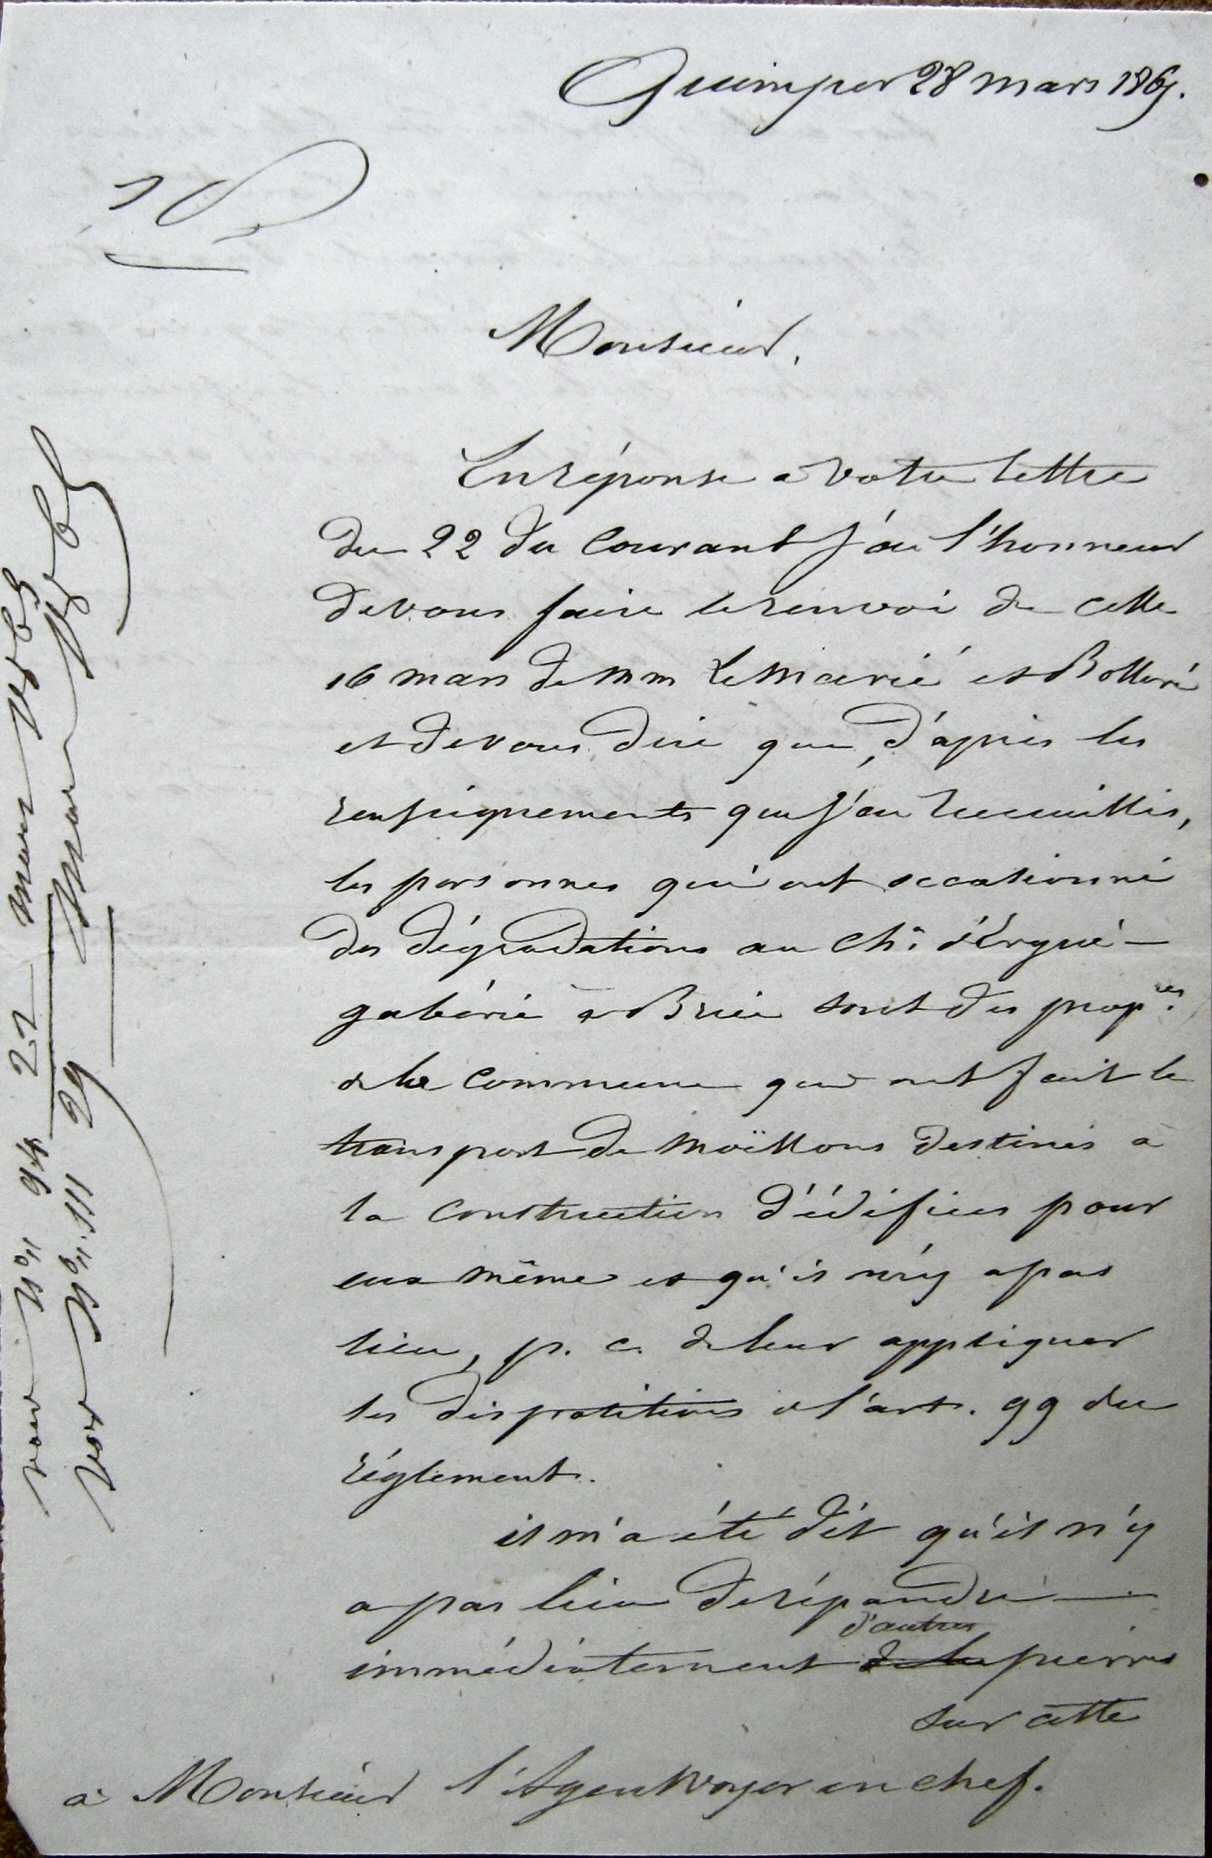 Quimper 28 mars 1865.
Monsieur,
En réponse a votre lettre
du 22 du Courant j'ai l'honneur
de vous faire le renvoi de celle
16 mars de mm Le Marié et Bolloré
et de vous dire que, d'après les
renseignements que j'ai recueillis,
les personnes qui ont occasionné
des dégradations au ch.ⁿ d'Ergué-
gabéric à Briec sont des prop.res
de la commune qui ont fait le
transport de moëllons destinés a
la construction d'édifices pour
eux même et qu'il n'y a pas
lieu, p. c. de leur appliquer
les dispositions de l'art. 99 du
réglement.
il m'a été dit qu'il n'y
a pas lieu de répandre
d'autres
immédiatement de les pierres
sur cette
a Monsieur l'Agent Voyer en chef.
voir Nº 94 22 mars 1865
Voir Nº 111 29 Mars 1865